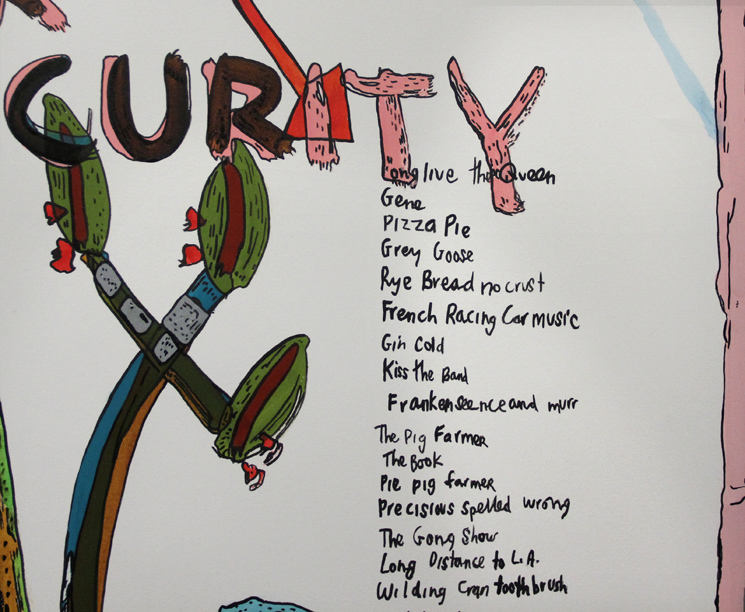 CURITY
Long live the Queen
Gene
Pizza Pie
Grey Goose
Rye Bread no crust
French Racing Car music
Gin Cold
Kiss the Band
Frankenseence and murr
The Pig Farmer
The Book
Pie pig farmer
Precisious spelled wrong
The Gong Show
Long Distance to L.A.
Wilding Cran toothbrush